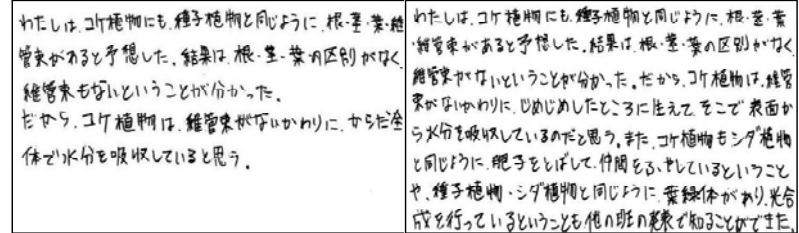 わたしは、コケ植物にも、種子植物と同じように、根・茎・葉・維
管束があると予想した。結果は、根・茎・葉の区別がなく、
維管束もないということが分かった。
だから、コケ植物は、維管束がないかわりに、からだ全
体で水分を吸収していると思う。
わたしは、コケ植物にも、種子植物と同じように、根・茎・葉
・維管束があると予想した。結果は、根・茎・葉の区別がなく
維管束がないということが分かった。だから、コケ植物は、維管
束がないかわりに、じめじめしたところに生えて、そこで表面か
ら水分を吸収しているのだと思う。また、コケ植物もシダ植物
と同じように、胞子をとばして、仲間をふやしているということ
や、種子植物・シダ植物と同じように、葉緑体があり、光合
成を行っているということも他の班の発表で知ることができた。